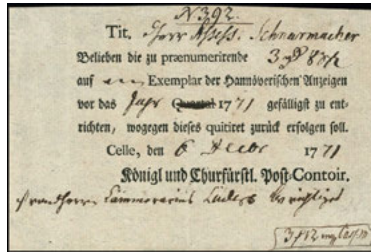 N 392.
Tit. Herr Assess. Schnurmacher
Belieben die zu prænumerirende 3
auf ein Exemplar der Hannöverischen Anzeigen
vor das Jahr Quartal 1771 gefälligst zu ent-
richten, wogegen dieses quitiret zurück erfolgen soll.
Celle, den 6 Decbr 1771
Königl und Churfürstl. Post-Contoir.
Herrn Cammerarius